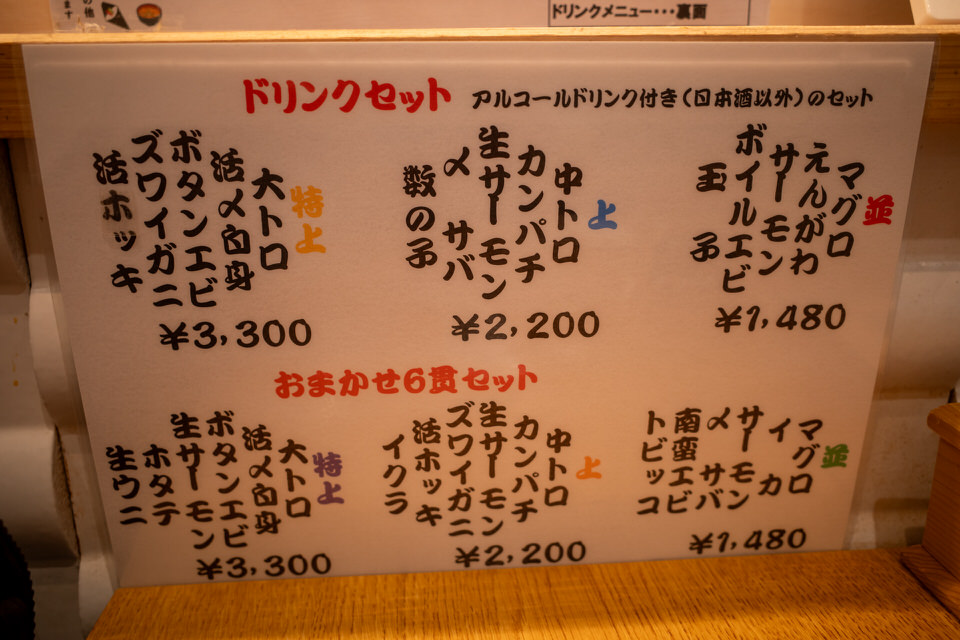 の他
ます
ドリンクメニュー・・・裏面
ドリンクセット
アルコールドリンク付き(日本酒以外)のセット
並
マグロ
えんがわ
サーモン
ボイルエビ
玉子
¥1,480
上
中トロ
カンパチ
生サーモン
〆サバ
数の子
¥2,200
特上
大トロ
活〆白身
ボタンエビ
ズワイガニ
活ホッキ
¥3,300
おまかせ6貫セット
並
マグロ
イカ
サーモン
〆サバ
南蛮エビ
トビッコ
¥1,480
上
中トロ
カンパチ
生サーモン
ズワイガニ
活ホッキ
イクラ
¥2,200
特上
大トロ
活〆白身
ボタンエビ
生サーモン
ホタテ
生ウニ
¥3,300